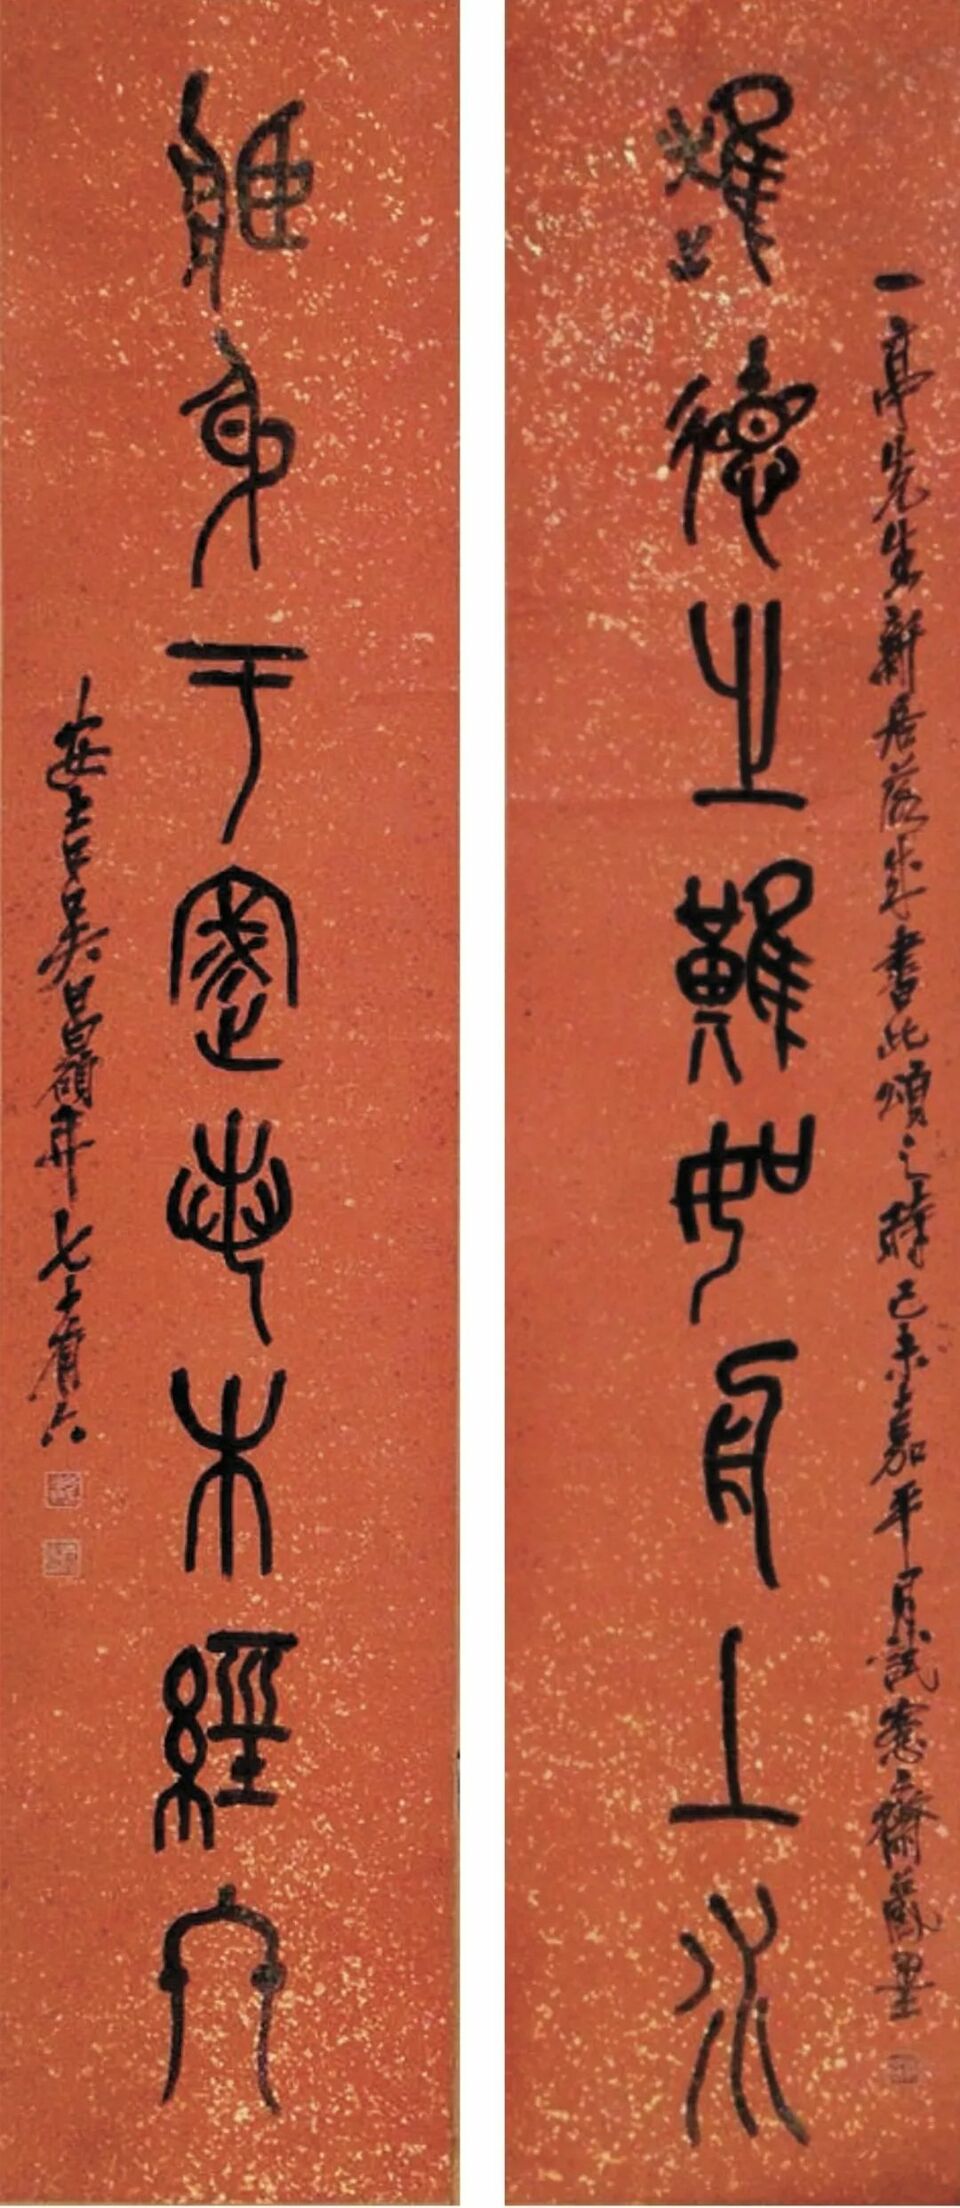 一亭先生新居落成書此頌之時己未嘉平月試愙齋藏墨
德之難如舟上水
身于家木經
安吉吳昌碩年七十有六